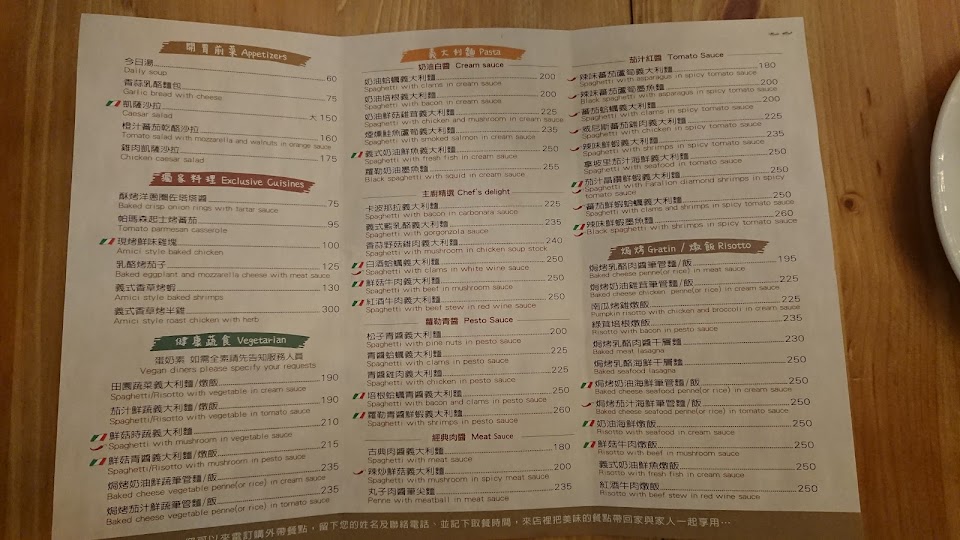 開胃前菜 Appetizers
今日湯 60
Daily soup
青蒜乳酪麵包 75
Garlic bread with cheese
凱薩沙拉 大 150
Caesar salad
橙汁蕃茄乾酪沙拉 160
Tomato salad with mozzarella and walnuts in orange sauce
雞肉凱薩沙拉 175
Chicken caesar salad
獨家料理 Exclusive Cuisines
酥烤洋蔥圈佐塔塔醬 75
Baked crisp onion rings with tartar sauce
帕瑪森起士烤蕃茄 95
Tomato parmesan casserole
現烤鮮味雞塊 100
Amici style baked chicken
乳酪烤茄子 125
Baked eggplant and mozzarella cheese with meat sauce
義式香草烤蝦 130
Amici style baked shrimps
義式香草烤半雞 300
Amici style roast chicken with herb
健康蔬食 Vegetarian
蛋奶素 如需全素請先告知服務人員
Vegan diners please specify your requests
田園蔬菜義大利麵/燉飯 190
Spaghetti/Risotto with vegetable in cream sauce
茄汁鮮蔬義大利麵/燉飯 190
Spaghetti/Risotto with vegetable in tomato sauce
鮮菇時蔬義大利麵 210
Spaghetti with mushroom in vegetable sauce
鮮菇青醬義大利麵/燉飯 215
Spaghetti/Risotto with mushroom in pesto sauce
焗烤奶油鮮蔬筆管麵/飯 235
Baked cheese vegetable penne(or rice) in cream sauce
焗烤茄汁鮮蔬筆管麵/飯 235
Baked cheese vegetable penne(or rice) in tomato sauce
義大利麵 Pasta
奶油白醬 Cream sauce
奶油蛤蠣義大利麵 200
Spaghetti with clams in cream sauce
奶油培根義大利麵 200
Spaghetti with bacon in cream sauce
奶油鮮菇雞茸義大利麵 225
Spaghetti with chicken and mushroom in cream sauce
煙燻鮭魚蘆筍義大利麵 235
Spaghetti with smoked salmon in cream sauce
義式奶油鮮魚義大利麵 250
Spaghetti with fresh fish in cream sauce
羅勒奶油墨魚麵 255
Black spaghetti with squid in cream sauce
主廚精選 Chef's delight
卡波那拉義大利麵 225
Spaghetti with bacon in carbonara sauce
義式藍乳酪義大利麵 235
Spaghetti with gorgonzola sauce
香蒜野菇雞肉義大利麵 240
Spaghetti with mushroom in chicken soup stock
白酒蛤蠣義大利麵 250
Spaghetti with clams in white wine sauce
鮮菇牛肉義大利麵 250
Spaghetti with beef in mushroom sauce
紅酒牛肉義大利麵 250
Spaghetti with beef stew in red wine sauce
羅勒青醬 Pesto Sauce
松子青醬義大利麵 200
Spaghetti with pine nuts in pesto sauce
青醬蛤蠣義大利麵 225
Spaghetti with clams in pesto sauce
青醬雞肉義大利麵 225
Spaghetti with chicken in pesto sauce
培根蛤蠣青醬義大利麵 250
Spaghetti with bacon and clams in pesto sauce
羅勒青醬鮮蝦義大利麵 260
Spaghetti with shrimps in pesto sauce
經典肉醬 Meat Sauce
古典肉醬義大利麵 180
Spaghetti with meat sauce
辣炒鮮菇義大利麵 200
Spaghetti with mushroom in spicy meat sauce
丸子肉醬筆尖麵 235
Penne with meatball in meat sauce
茄汁紅醬 Tomato Sauce
辣味蕃茄蘆筍義大利麵 180
Spaghetti with asparagus in spicy tomato sauce
辣味蕃茄蘆筍墨魚麵 200
Black spaghetti with asparagus in spicy tomato sauce
蕃茄蛤蠣義大利麵 200
Spaghetti with clams in spicy tomato sauce
威尼斯蕃茄雞肉義大利麵 225
Spaghetti with chicken in spicy tomato sauce
辣味鮮蝦義大利麵 235
Spaghetti with shrimps in spicy tomato sauce
拿坡里茄汁海鮮義大利麵 250
Spaghetti with seafood in tomato sauce
茄汁晶鑽鮮蝦義大利麵 250
Spaghetti with Farallon diamond shrimps in spicy
tomato sauce
蕃茄鮮蝦蛤蠣義大利麵 250
Spaghetti with clams and shrimps in spicy tomato sauce
辣味鮮蝦墨魚麵 260
Black spaghetti with shrimps in spicy tomato sauce
焗烤 Gratin / 燉飯 Risotto
焗烤乳酪肉醬筆管麵/飯 195
Baked cheese penne(or rice) in meat sauce
焗烤奶油雞茸筆管麵/飯 225
Baked cheese chicken penne(or rice) in cream sauce
南瓜烤雞燉飯 225
Pumpkin risotto with chicken and broccoli in cream sauce
綠茸培根燉飯 235
Risotto with bacon in pesto sauce
焗烤乳酪肉醬千層麵 230
Baked meat lasagna
焗烤乳酪海鮮千層麵 250
Baked seafood lasagna
焗烤奶油海鮮筆管麵/飯 250
Baked cheese seafood penne(or rice) in cream sauce
焗烤茄汁海鮮筆管麵/飯 250
Baked cheese seafood penne(or rice) in tomato sauce
奶油海鮮燉飯 250
Risotto with seafood in cream sauce
鮮菇牛肉燉飯 250
Risotto with beef in mushroom sauce
義式奶油鮮魚燉飯 250
Risotto with fresh fish in cream sauce
紅酒牛肉燉飯 250
Risotto with beef stew in red wine sauce
可以來電訂購外帶餐點，留下您的姓名及聯絡電話、並記下取餐時間，來店裡把美味的餐點帶回家與家人一起享用…